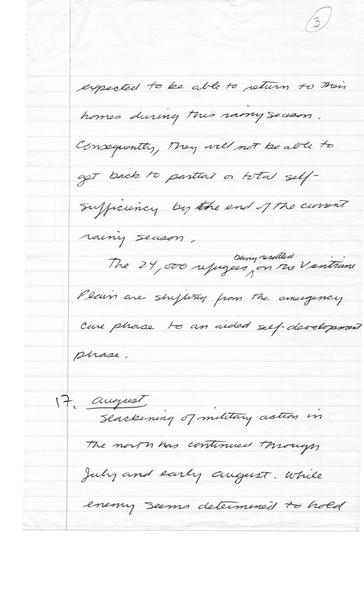 3
expected to be able to return to their
homes during this rainy season.
Consequently, they will not be able to
get back to partial or total self-
sufficiency by the end of the current
rainy season.
being resettled
The 24,000 refugees ^ on the Vientiane
Plain are shifting from the emergency
care phase to an aided self-development
phase.
17. August
Slackening of military action in
the north has continued through
July and early August. While
enemy seems determined to hold